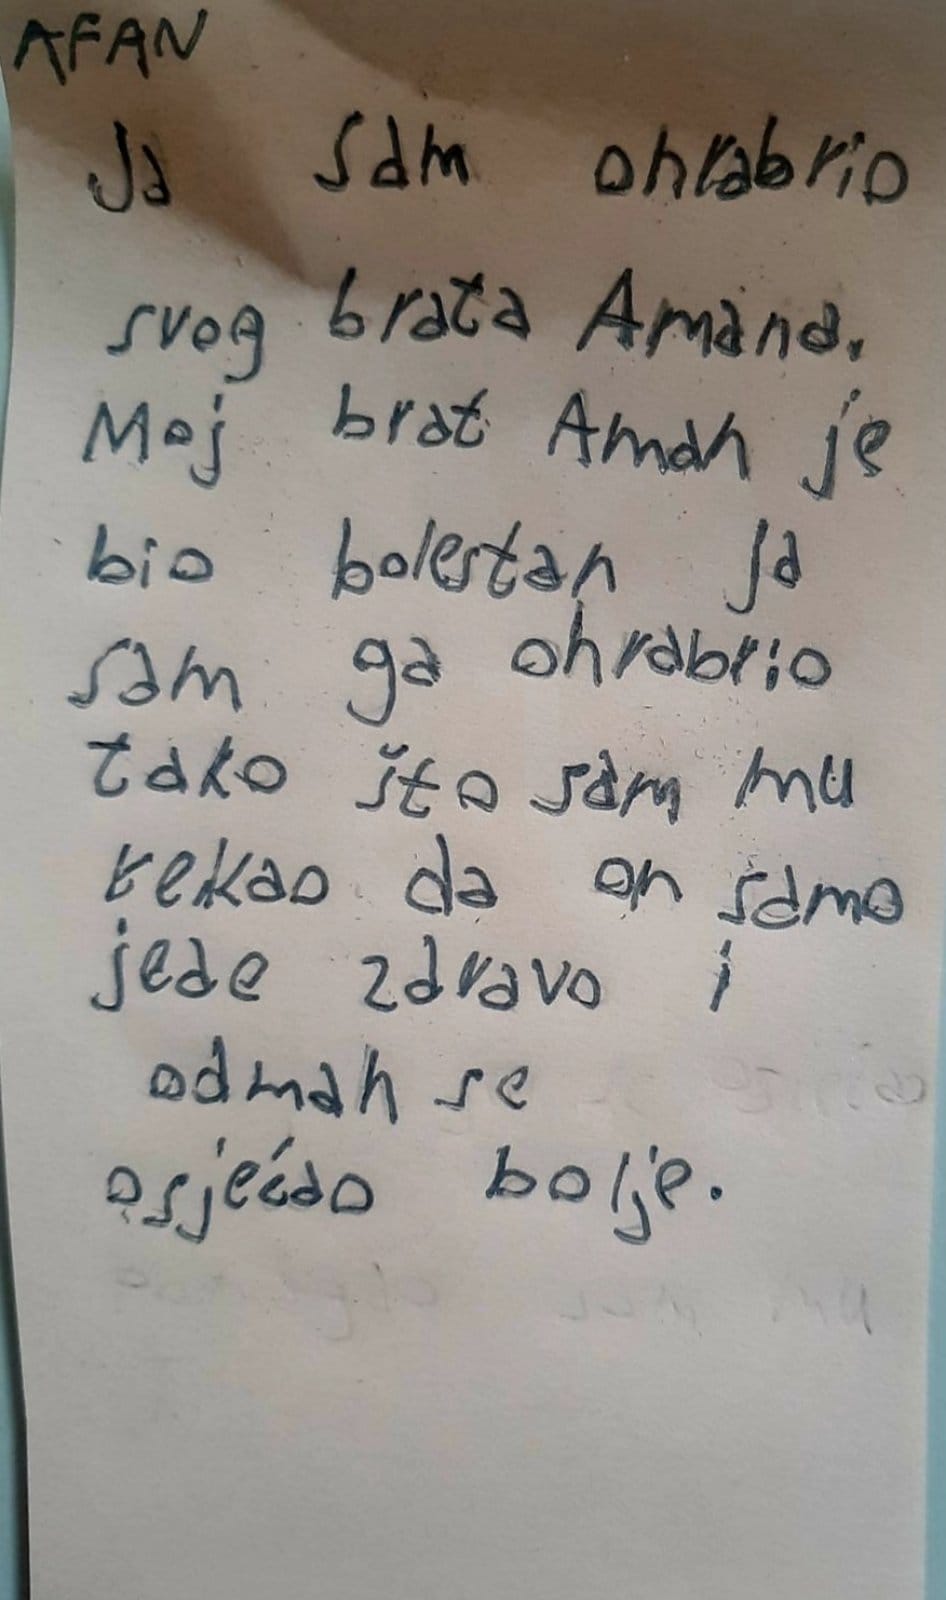 AFAN
Ja sam ohrabrio
svog brata Amana.
Moj brat Aman je
bio bolestan Ja
sam ga ohrabrio
tako što sam mu
rekao da on samo
jede zdravo i
odmah se
osjećao bolje.